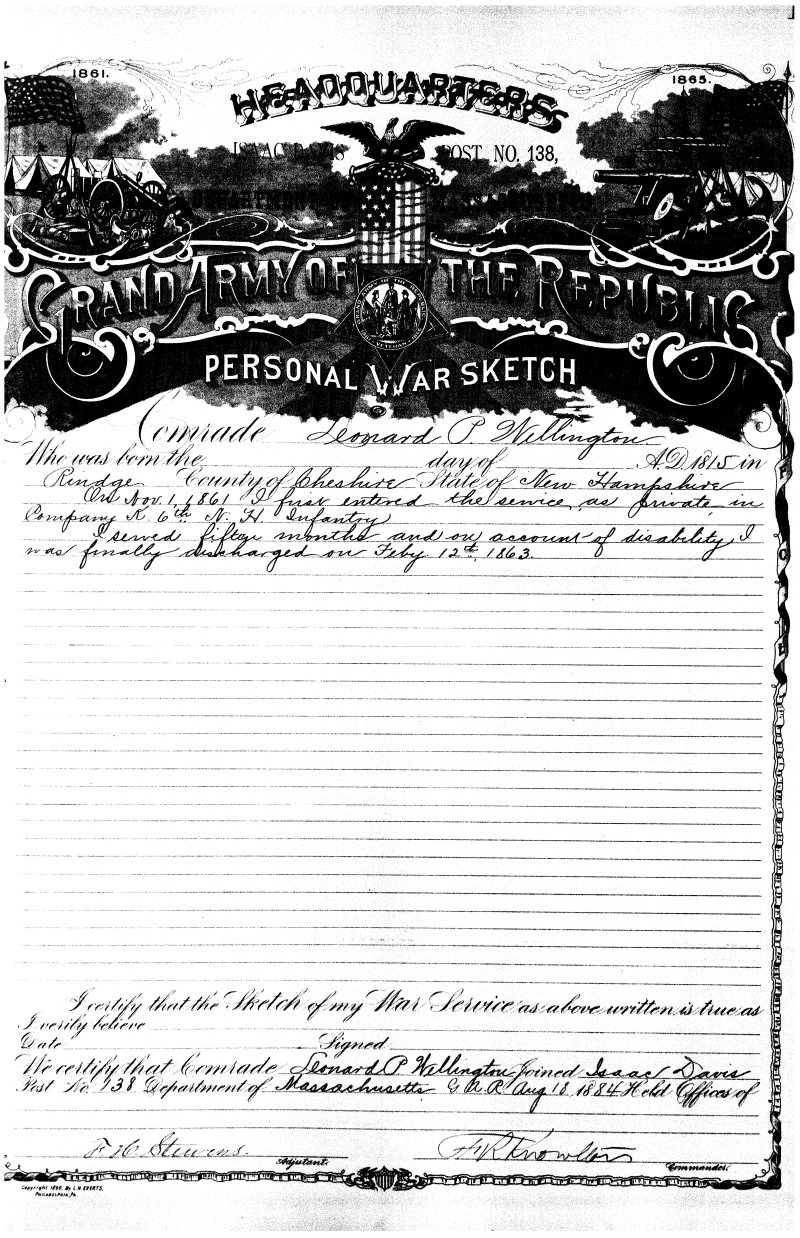 1861.
1865.
HEADQUARTERS
ISAAC DAVIS POST NO. 138,
DEPARTMENT OF MASSACHUSETTS
GRAND ARMY OF THE REPUBLIC
PERSONAL WAR SKETCH
Comrade Leonard P. Wellington
Who was born the day of A.D. 1815 in
Rindge County of Cheshire State of New Hampshire
On Nov. 1, 1861 I first entered the service as private in
Company K. 6th N. H. Infantry
I served fifteen months and on account of disability I
was finally discharged on Feby. 12th, 1863.
I certify that the Sketch of my War Service as above written is true as
I verily believe
Date Signed
We certify that Comrade Leonard P. Wellington Joined Isaac Davis
Post No. 138 Department of Massachusetts G.A.R. Aug 18, 1884 Held Offices of
F. H. Stevens.
Adjutant.
Commander.
Copyright 1890, By L.H. EVERTS.
PHILADELPHIA, PA.